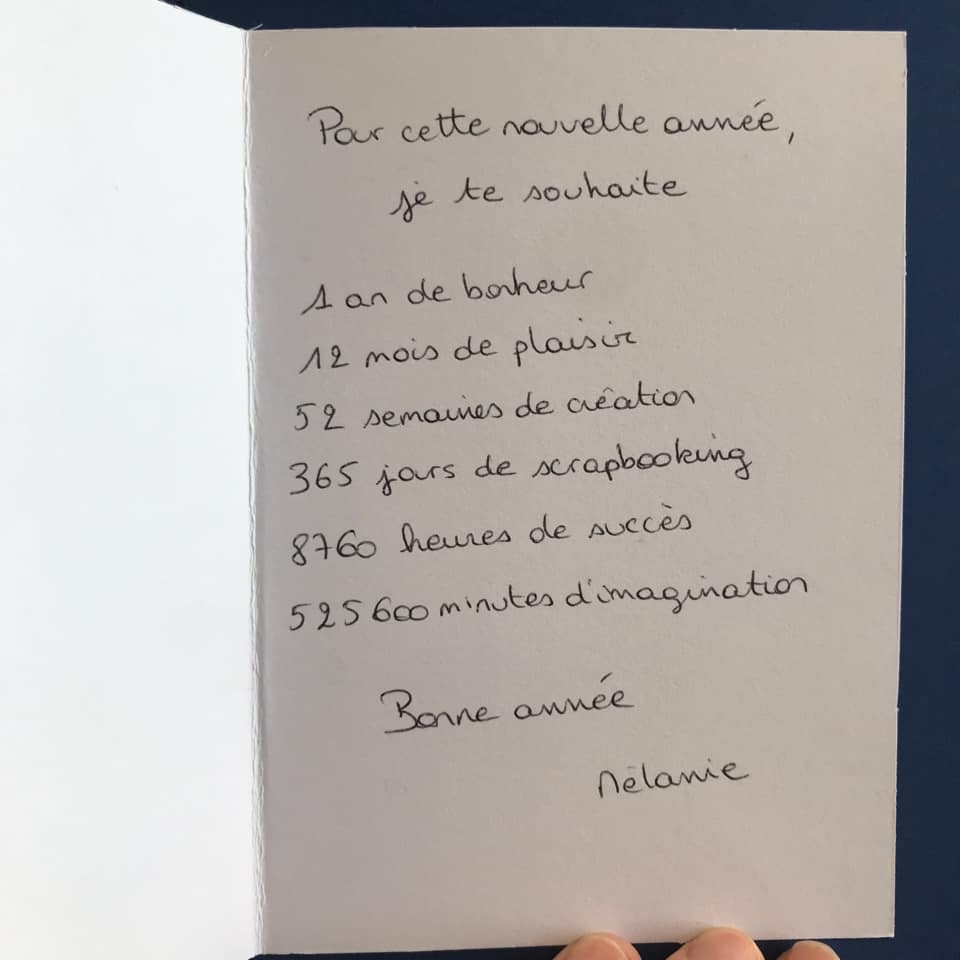 Pour cette nouvelle année,
je te souhaite
1 an de bonheur
12 mois de plaisir
52 semaines de création
365 jours de scrapbooking
8760 heures de succès
525 600 minutes d'imagination
Bonne année
Mélanie